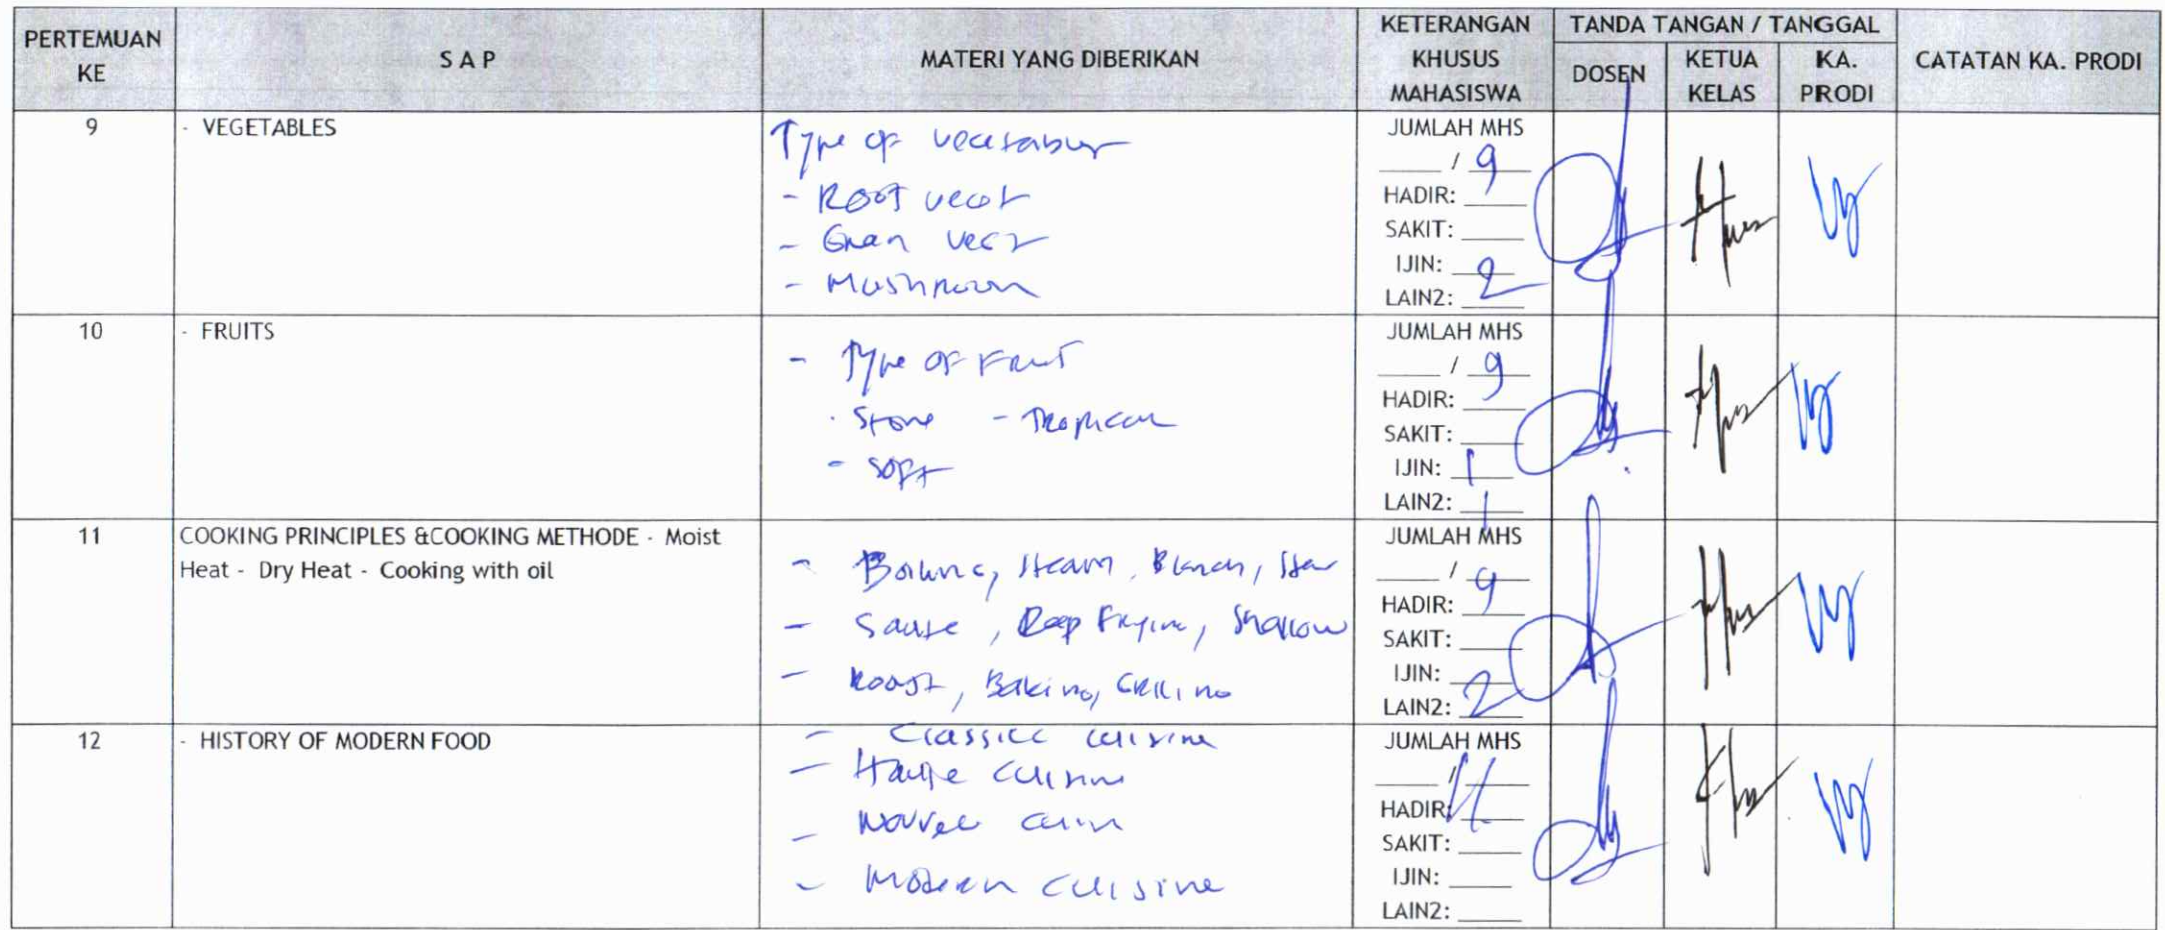 PERTEMUAN KE
S A P
MATERI YANG DIBERIKAN
KETERANGAN KHUSUS MAHASISWA
TANDA TANGAN / TANGGAL
DOSEN
KETUA KELAS
KA. PRODI
CATATAN KA. PRODI
9
- VEGETABLES
Type of
- Root
-
- Mushroom
JUMLAH MHS
/ 9
HADIR:
SAKIT:
IJIN:
LAIN2: 2
10
- FRUITS
- Type of Fruit
. Stone - Tropical
- Soft
JUMLAH MHS
/ 9
HADIR:
SAKIT:
IJIN: 1
LAIN2: 1
11
COOKING PRINCIPLES &COOKING METHODE - Moist
Heat - Dry Heat - Cooking with oil
- Boiling, Steam, Blanch, Stew
- Saute, Deep Frying, Shallow
- Roast, Baking, Grilling
JUMLAH MHS
/ 9
HADIR:
SAKIT:
IJIN:
LAIN2: 2
12
- HISTORY OF MODERN FOOD
- Classic cuisine
- Haute cuisine
-
- Modern cuisine
JUMLAH MHS
/ 11
HADIR:
SAKIT:
IJIN:
LAIN2: